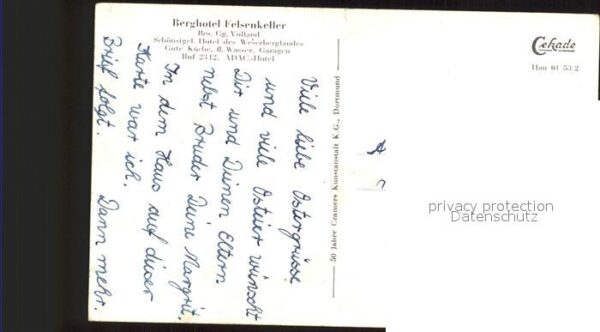 Berghotel Felsenkeller
Bes. Gg. Volland
Schönstgel. Hotel des Weserberglandes
Gute Küche, fl. Wasser, Garagen
Ruf 2312, ADAC-Hotel
Cekade
Han 01 53 2
50 Jahre Cramers Kunstanstalt K.G., Dortmund
Viele liebe Ostergrüsse
und viele Osteier wünscht
Dir und Deinen Eltern
nebst Bruder Deine Margrit.
In dem Haus auf dieser
Karte war ich.
Dann mehr.
Brief folgt.
privacy protection
Datenschutz